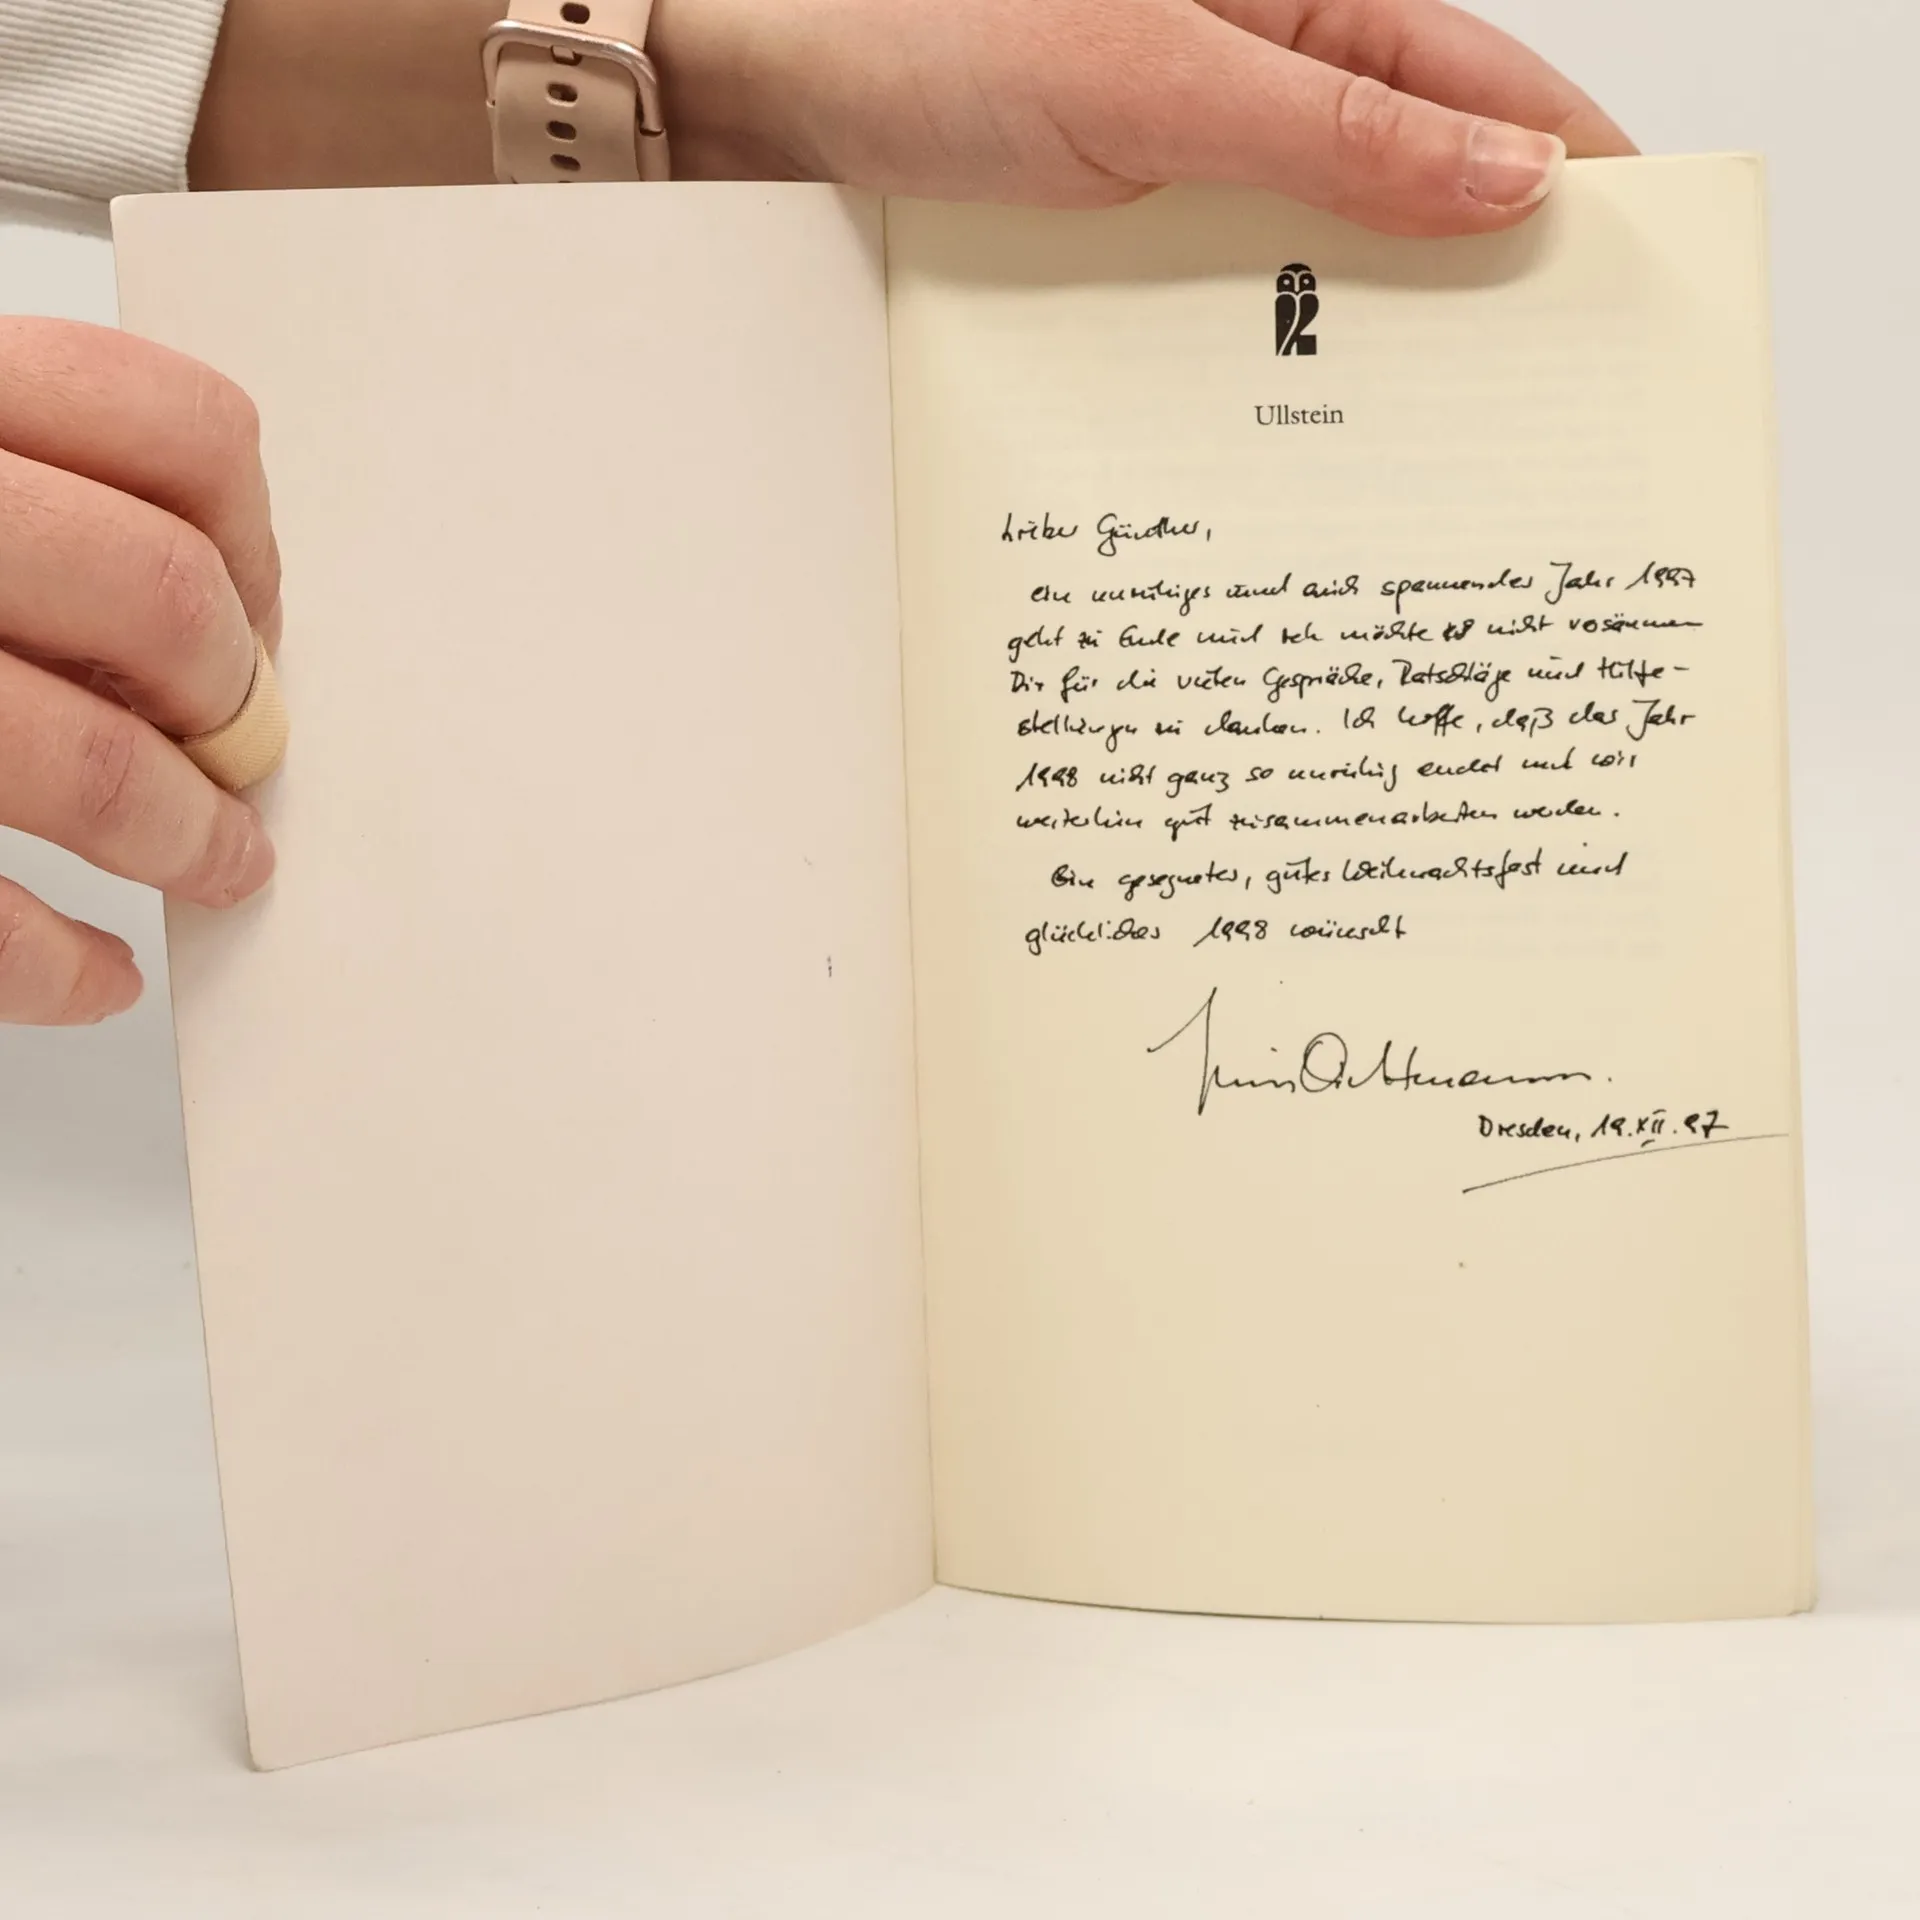 Ullstein
Lieber Günther,
ein unruhiges und auch spannendes Jahr 1997
geht zu Ende und ich möchte es nicht versäumen
Dir für die vielen Gespräche, Ratschläge und Hilfe-
stellungen zu danken. Ich hoffe, daß das Jahr
1998 nicht ganz so unruhig endet und wir
weiterhin gut zusammenarbeiten werden.
Ein gesegnetes, gutes Weihnachtsfest und
glückliches 1998 wünscht
Dresden, 19.XII.97